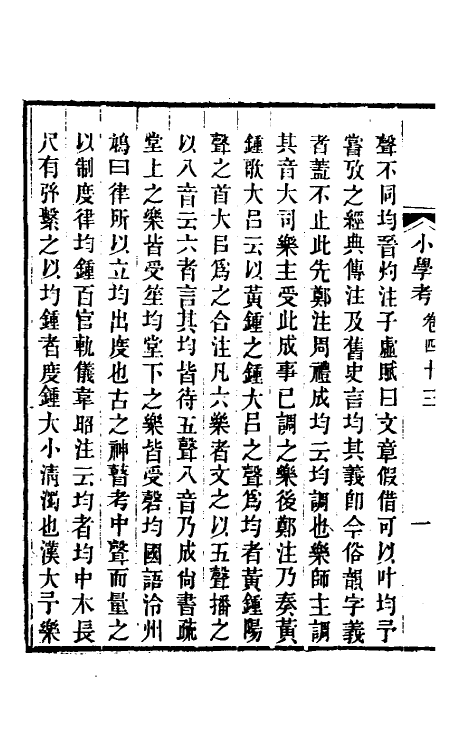 小學考 卷四十三 一
聲不同均晉灼注子虛賦曰文章假借可以叶均予
嘗攷之經典傳注及舊史言均其義卽今俗韻字義
者蓋不止此先鄭注周禮成均云均調也樂師主調
其音大司樂主受此成事已調之樂後鄭注乃奏黃
鍾歌大呂云以黃鍾之鍾大呂之聲爲均者黃鍾陽
聲之首大呂爲之合注凡六樂者文之以五聲播之
以八音云六者言其均皆待五聲八音乃成尙書疏
堂上之樂皆受笙均堂下之樂皆受磬均國語泠州
鳩曰律所以立均出度也古之神瞽考中聲而量之
以制度律均鍾百官軌儀韋昭注云均者均中木長
尺有弦繫之以均鍾者度鍾大小淸濁也漢大予樂